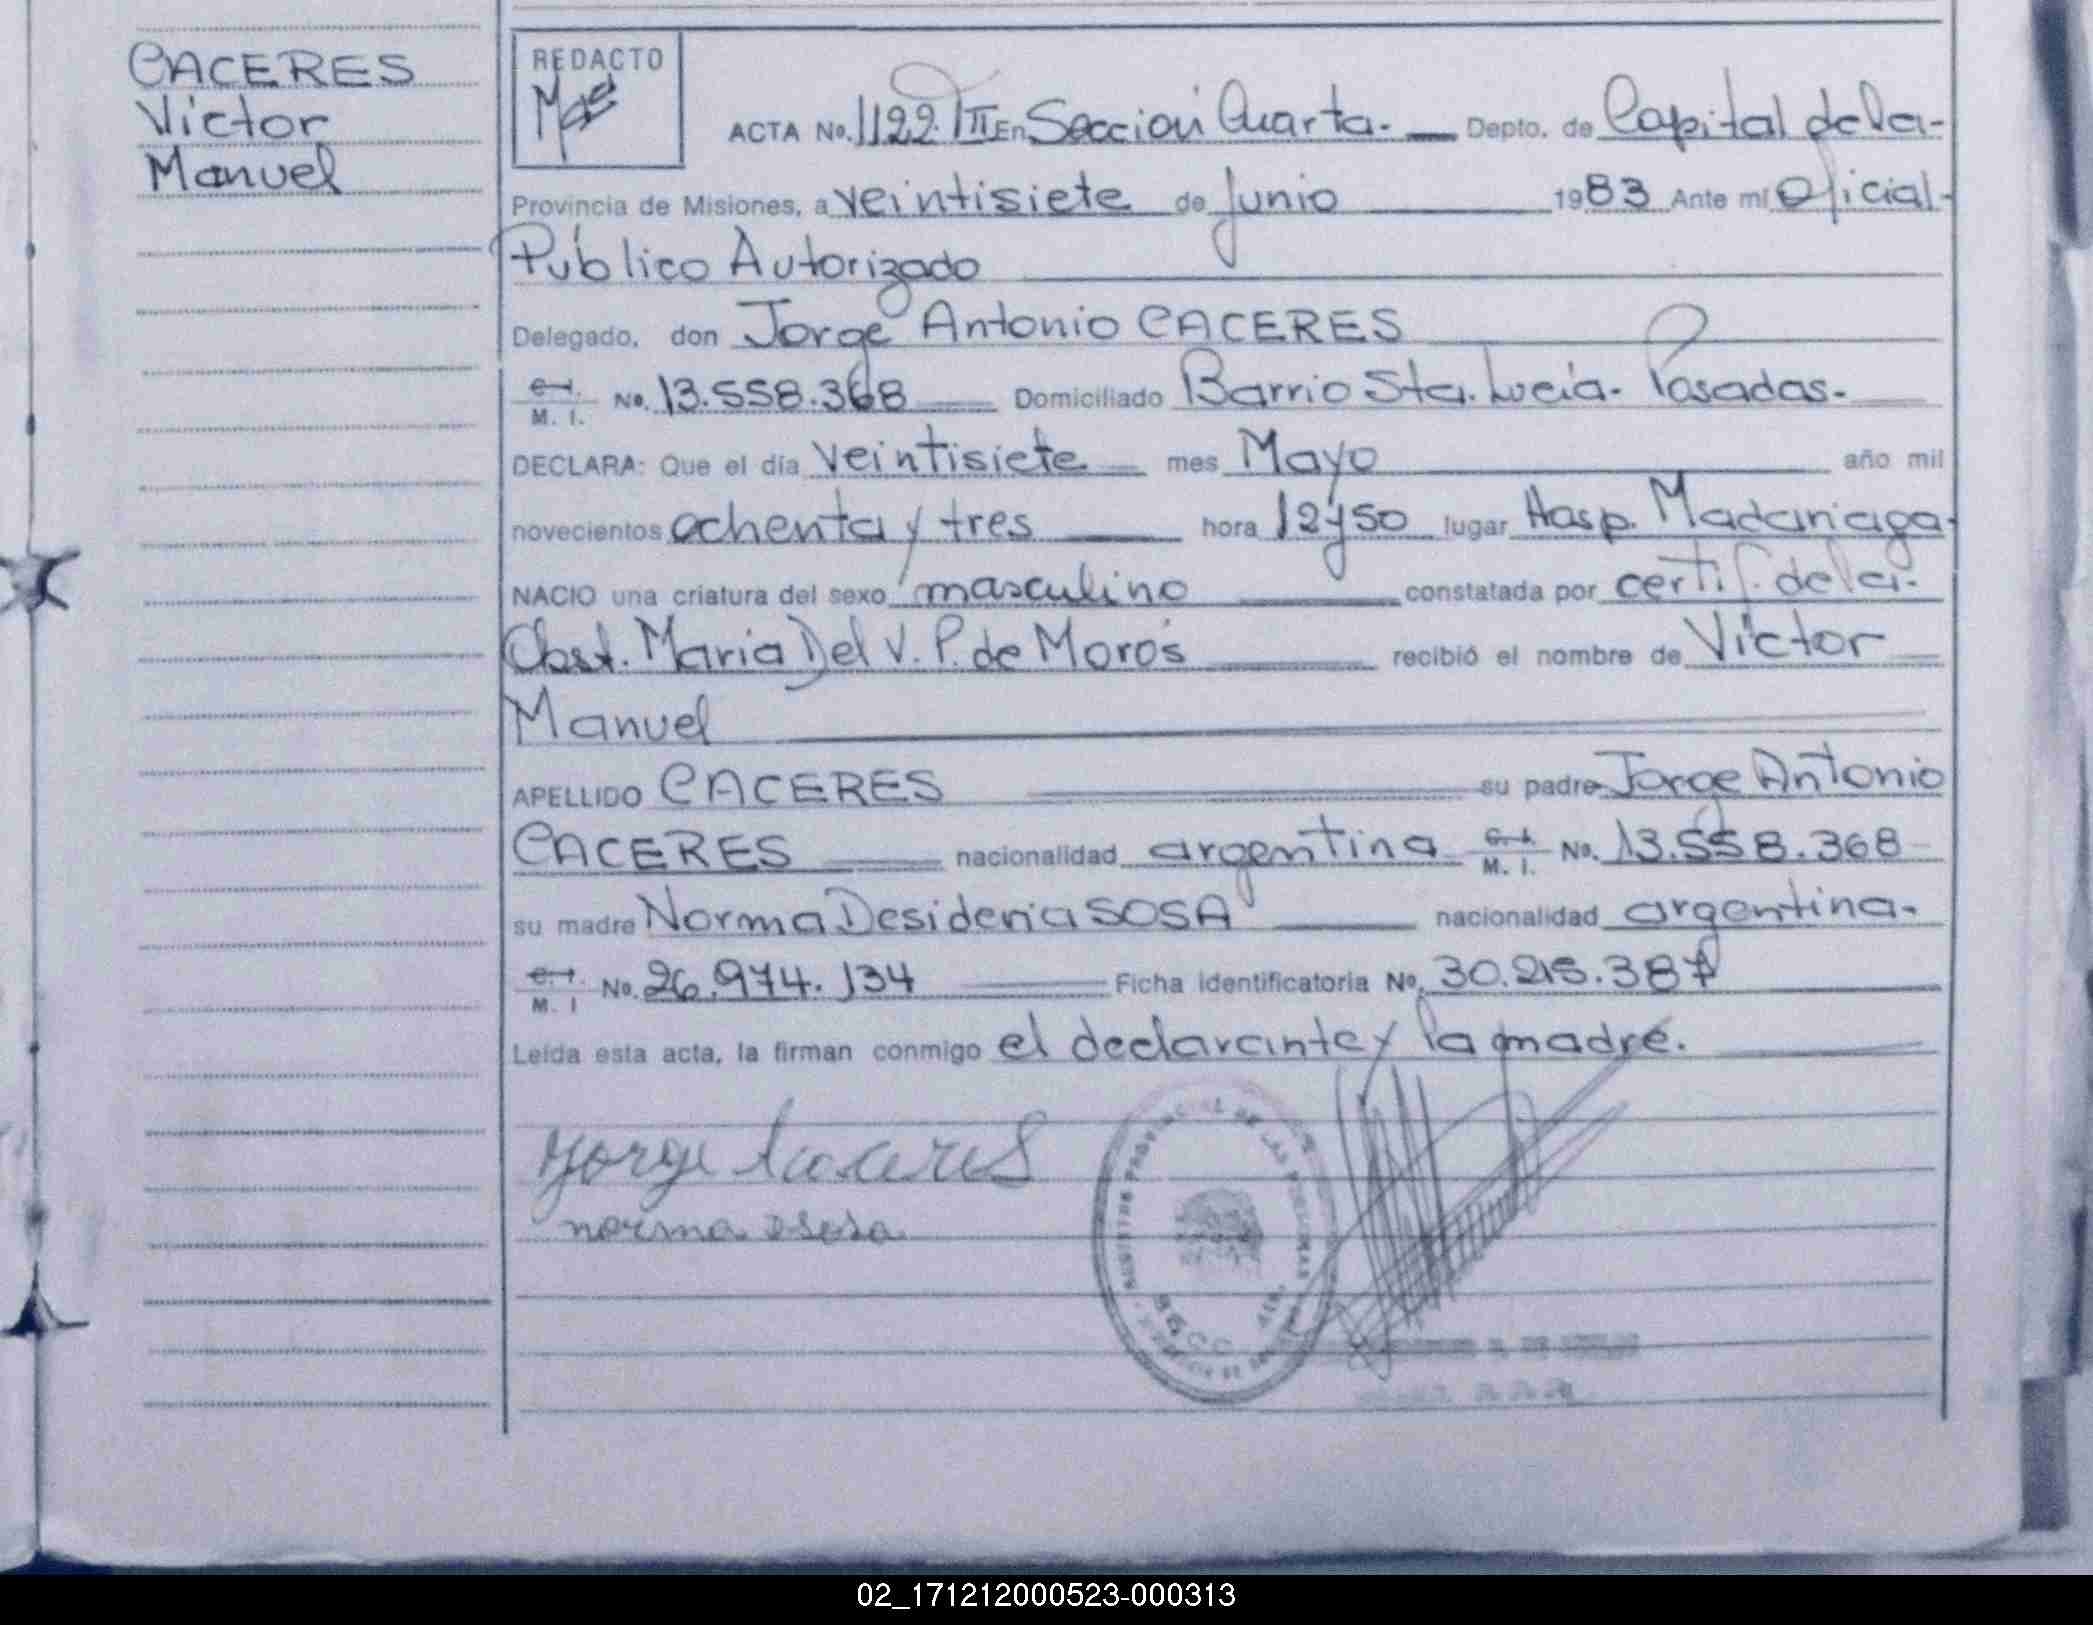 CACERES
Víctor
Manuel
REDACTO
ACTA No. 1122 TII En Sección Cuarta. Depto. de Capital de la-
Provincia de Misiones, a veintisiete de Junio 1983 Ante mí Oficial-
Público Autorizado
Delegado, don Jorge Antonio CACERES
C.I. M. I. No. 13.558.368 Domiciliado Barrio Sta. Lucía- Posadas.
DECLARA: Que el día veintisiete mes Mayo año mil
novecientos ochenta y tres hora 12y50 lugar Hosp. Madariaga-
NACIO una criatura del sexo masculino constatada por certif. de la-
Obst. María Del V. P. de Morós recibió el nombre de Víctor
Manuel
APELLIDO CACERES su padre Jorge Antonio
CACERES nacionalidad argentina C.I. M. I. No. 13.558.368
su madre Norma Desideria SOSA nacionalidad argentina.
C.I. M. I No. 26.974.134 Ficha identificatoria No. 30.215.387
Leída esta acta, la firman conmigo el declarante y la madre.
Jorge Caceres
norma d sosa
REGISTRO PROVINCIAL DE LAS PERSONAS
02_171212000523-000313